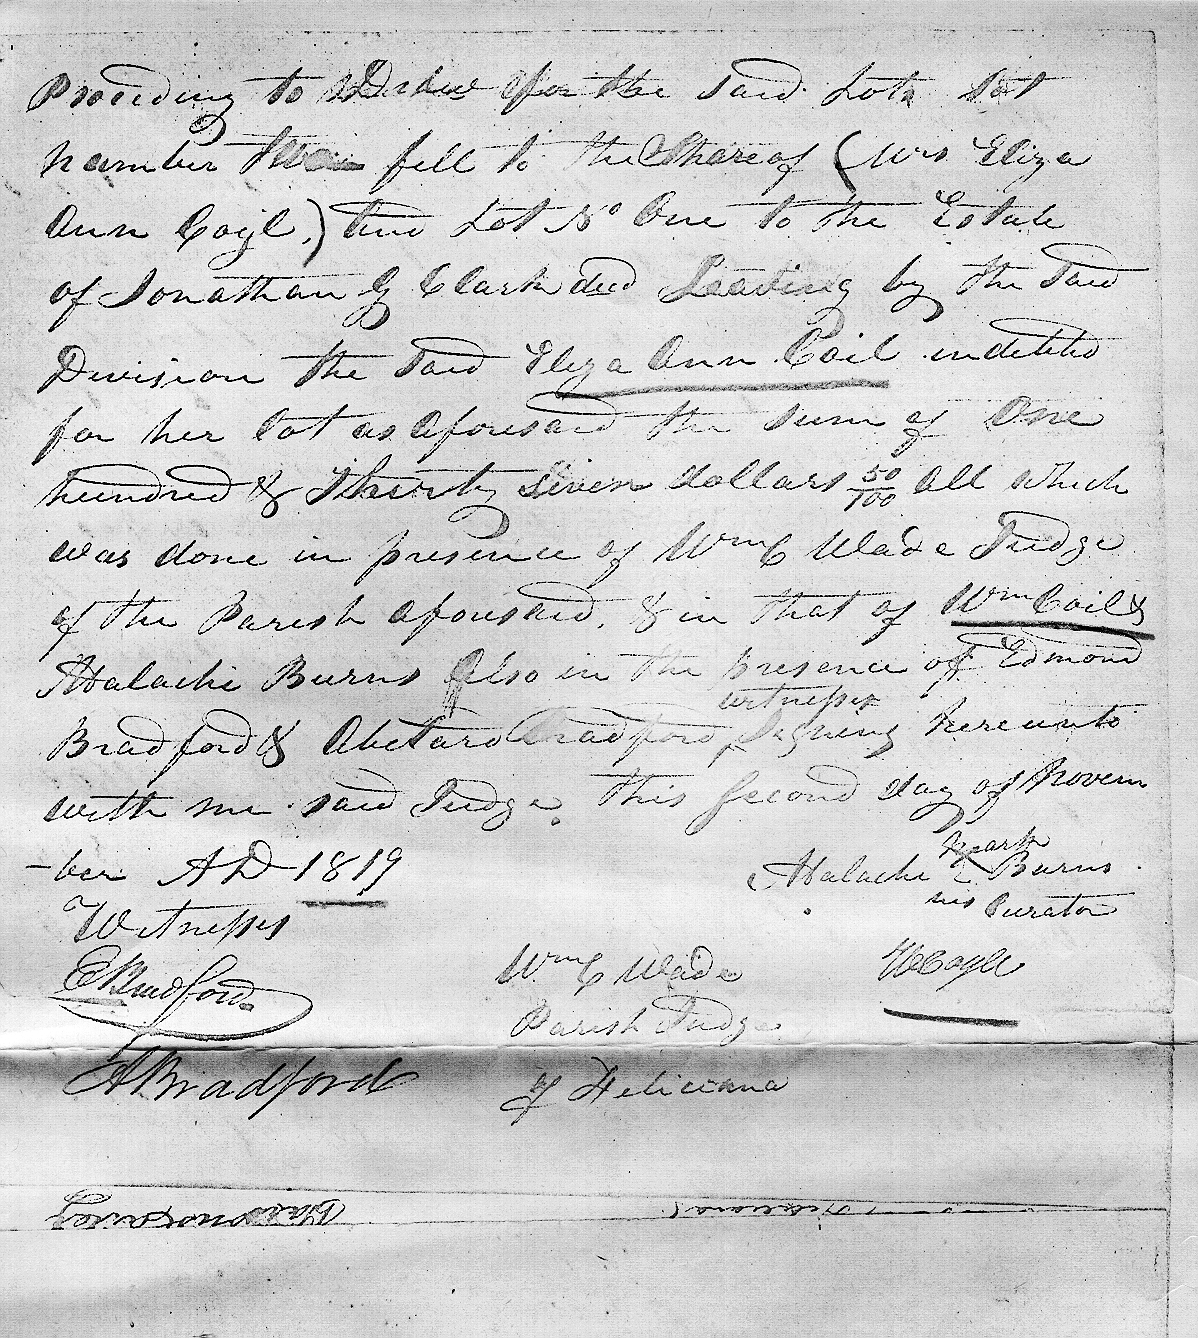 Proceeding to Draw for the said Lots Lot
number Two fell to the Share of (Mrs Eliza
Ann Coyl,) and Lot No One to the Estate
of Jonathan G Clark decd Leaving by the Said
Division the Said Eliza Ann Coil indebted
for her Lot as aforesaid the sum of One
hundred & Thirty Seven dollars 50/100 All which
was done in presence of Wm C Wade Judge
of the Parish aforesaid, & in that of Wm Coil &
Malachi Burns Also in the presence of Edmond
witnesses
Bradford & Abelard Bradford Signing hereunto
with me said Judge. this Second day of Novem
-ber AD 1819
mark
Malachi X Burns
his Curator
Witnesses
E Bradford
Wm C Wade
W Coyle
Parish Judge
A Bradford
of Feliciana